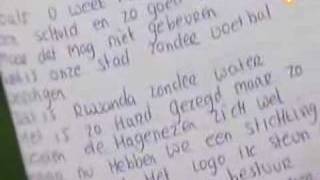 zoals u weet
schuld en zo goed
maar dat mag niet gebeuren
wat is onze stad zonder voetbal
dat is Rwanda zonder water
het is zo Hard gezegd maar zo
de Hagenezen zich wel
nu Hebben we een stichting
Het Logo ik steun
bestuur